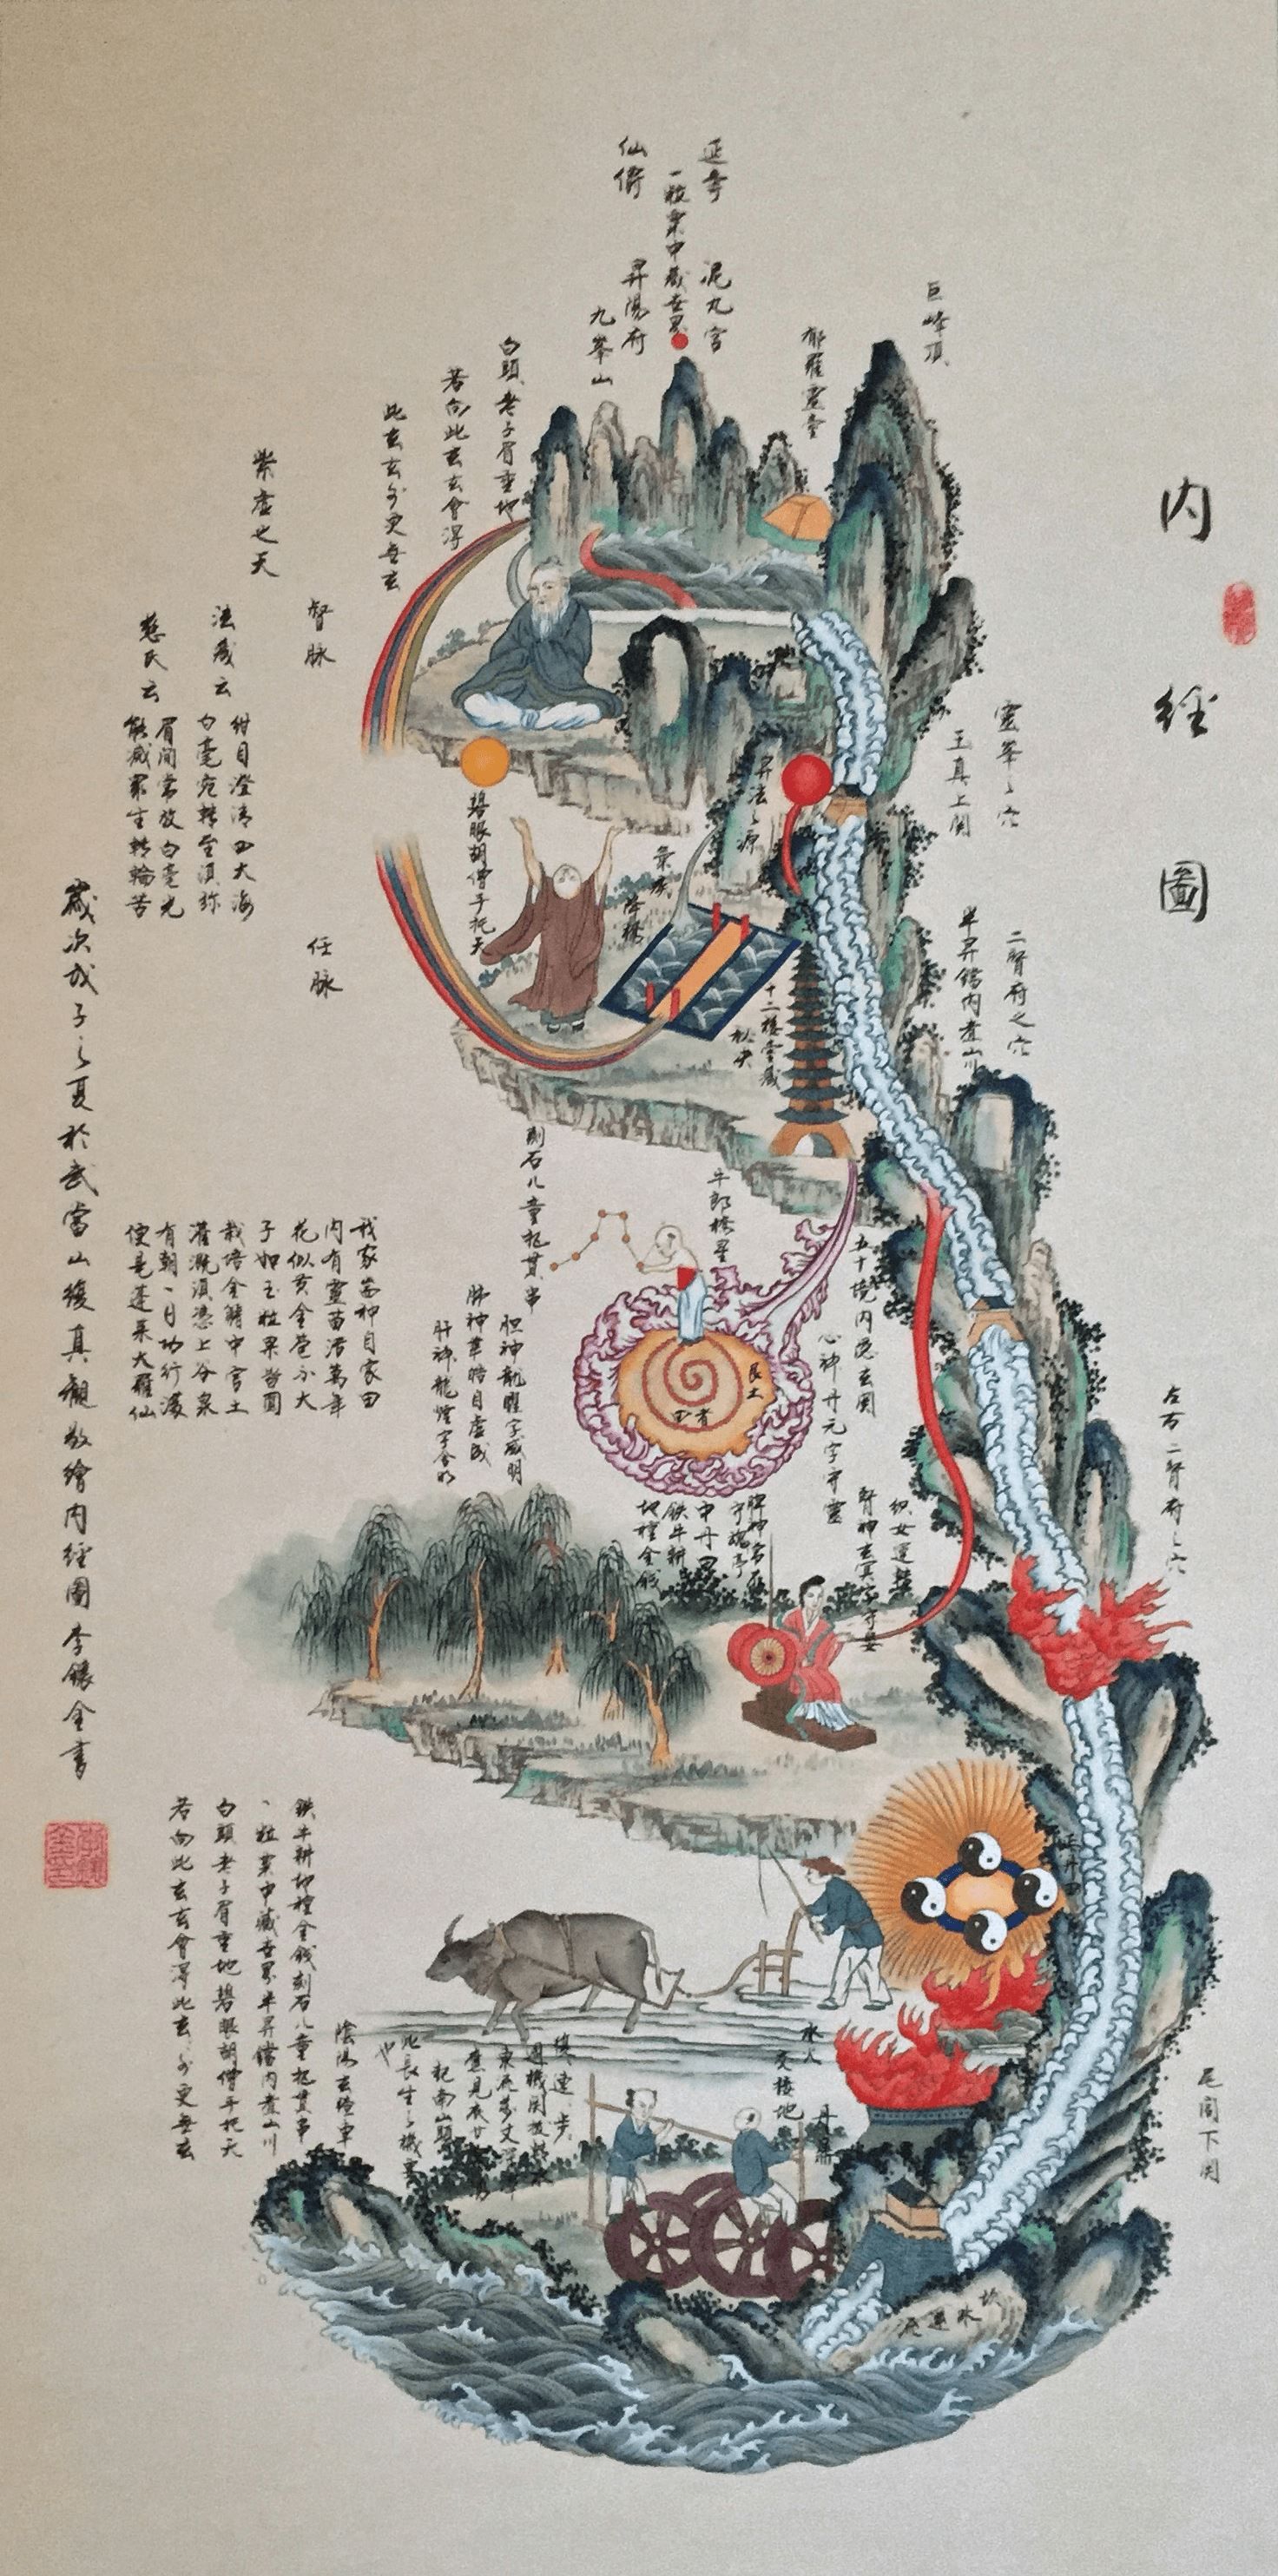 内經圖
巨峰頂
靈峯之穴
玉真上關
二腎府之穴
半昇鐺內煮山川
左右二腎府之穴
尾閭下關
郁羅靈臺
延壽
泥丸宮
一粒粟中藏世界
仙儕
昇陽府
九峯山
白頭老子眉垂地
若向此玄玄會得
此玄玄外更無玄
紫虛之天
督脉
法藏云
紺目澄清四大海
白毫宛轉至須弥
慈氏云
眉間常放白毫光
能滅眾生轉輪苦
任脉
昇法之源
碧眼胡僧手托天
降橋
十二樓臺藏
秘訣
牛郎橋星
刻石儿童把貫串
五十境内隱玄関
心神丹元字守靈
艮土
胆神龍曜字威明
肺神華皓自虛成
肝神龍煙字含明
我家耑种自家田
内有靈苗活萬年
花似黃金苞不大
子如玉粒果皆圓
栽培全賴中宮土
灌溉須憑上谷泉
有朝一日功行滿
便是蓬萊大羅仙
織女運轉
腎神玄冥字育嬰
中丹田
鉄牛耕
地種金錢
正丹田
水人
交接地
坎水逆流
陰陽玄踏車
鉄牛耕地種金錢刻石儿童把貫串
一粒粟中藏世界半昇鐺內煮山川
白頭老子眉垂地碧眼胡僧手托天
若向此玄玄會得此玄玄外更無玄
歲次戊子之夏於武當山復真觀敬繪内經圖李鏸全書